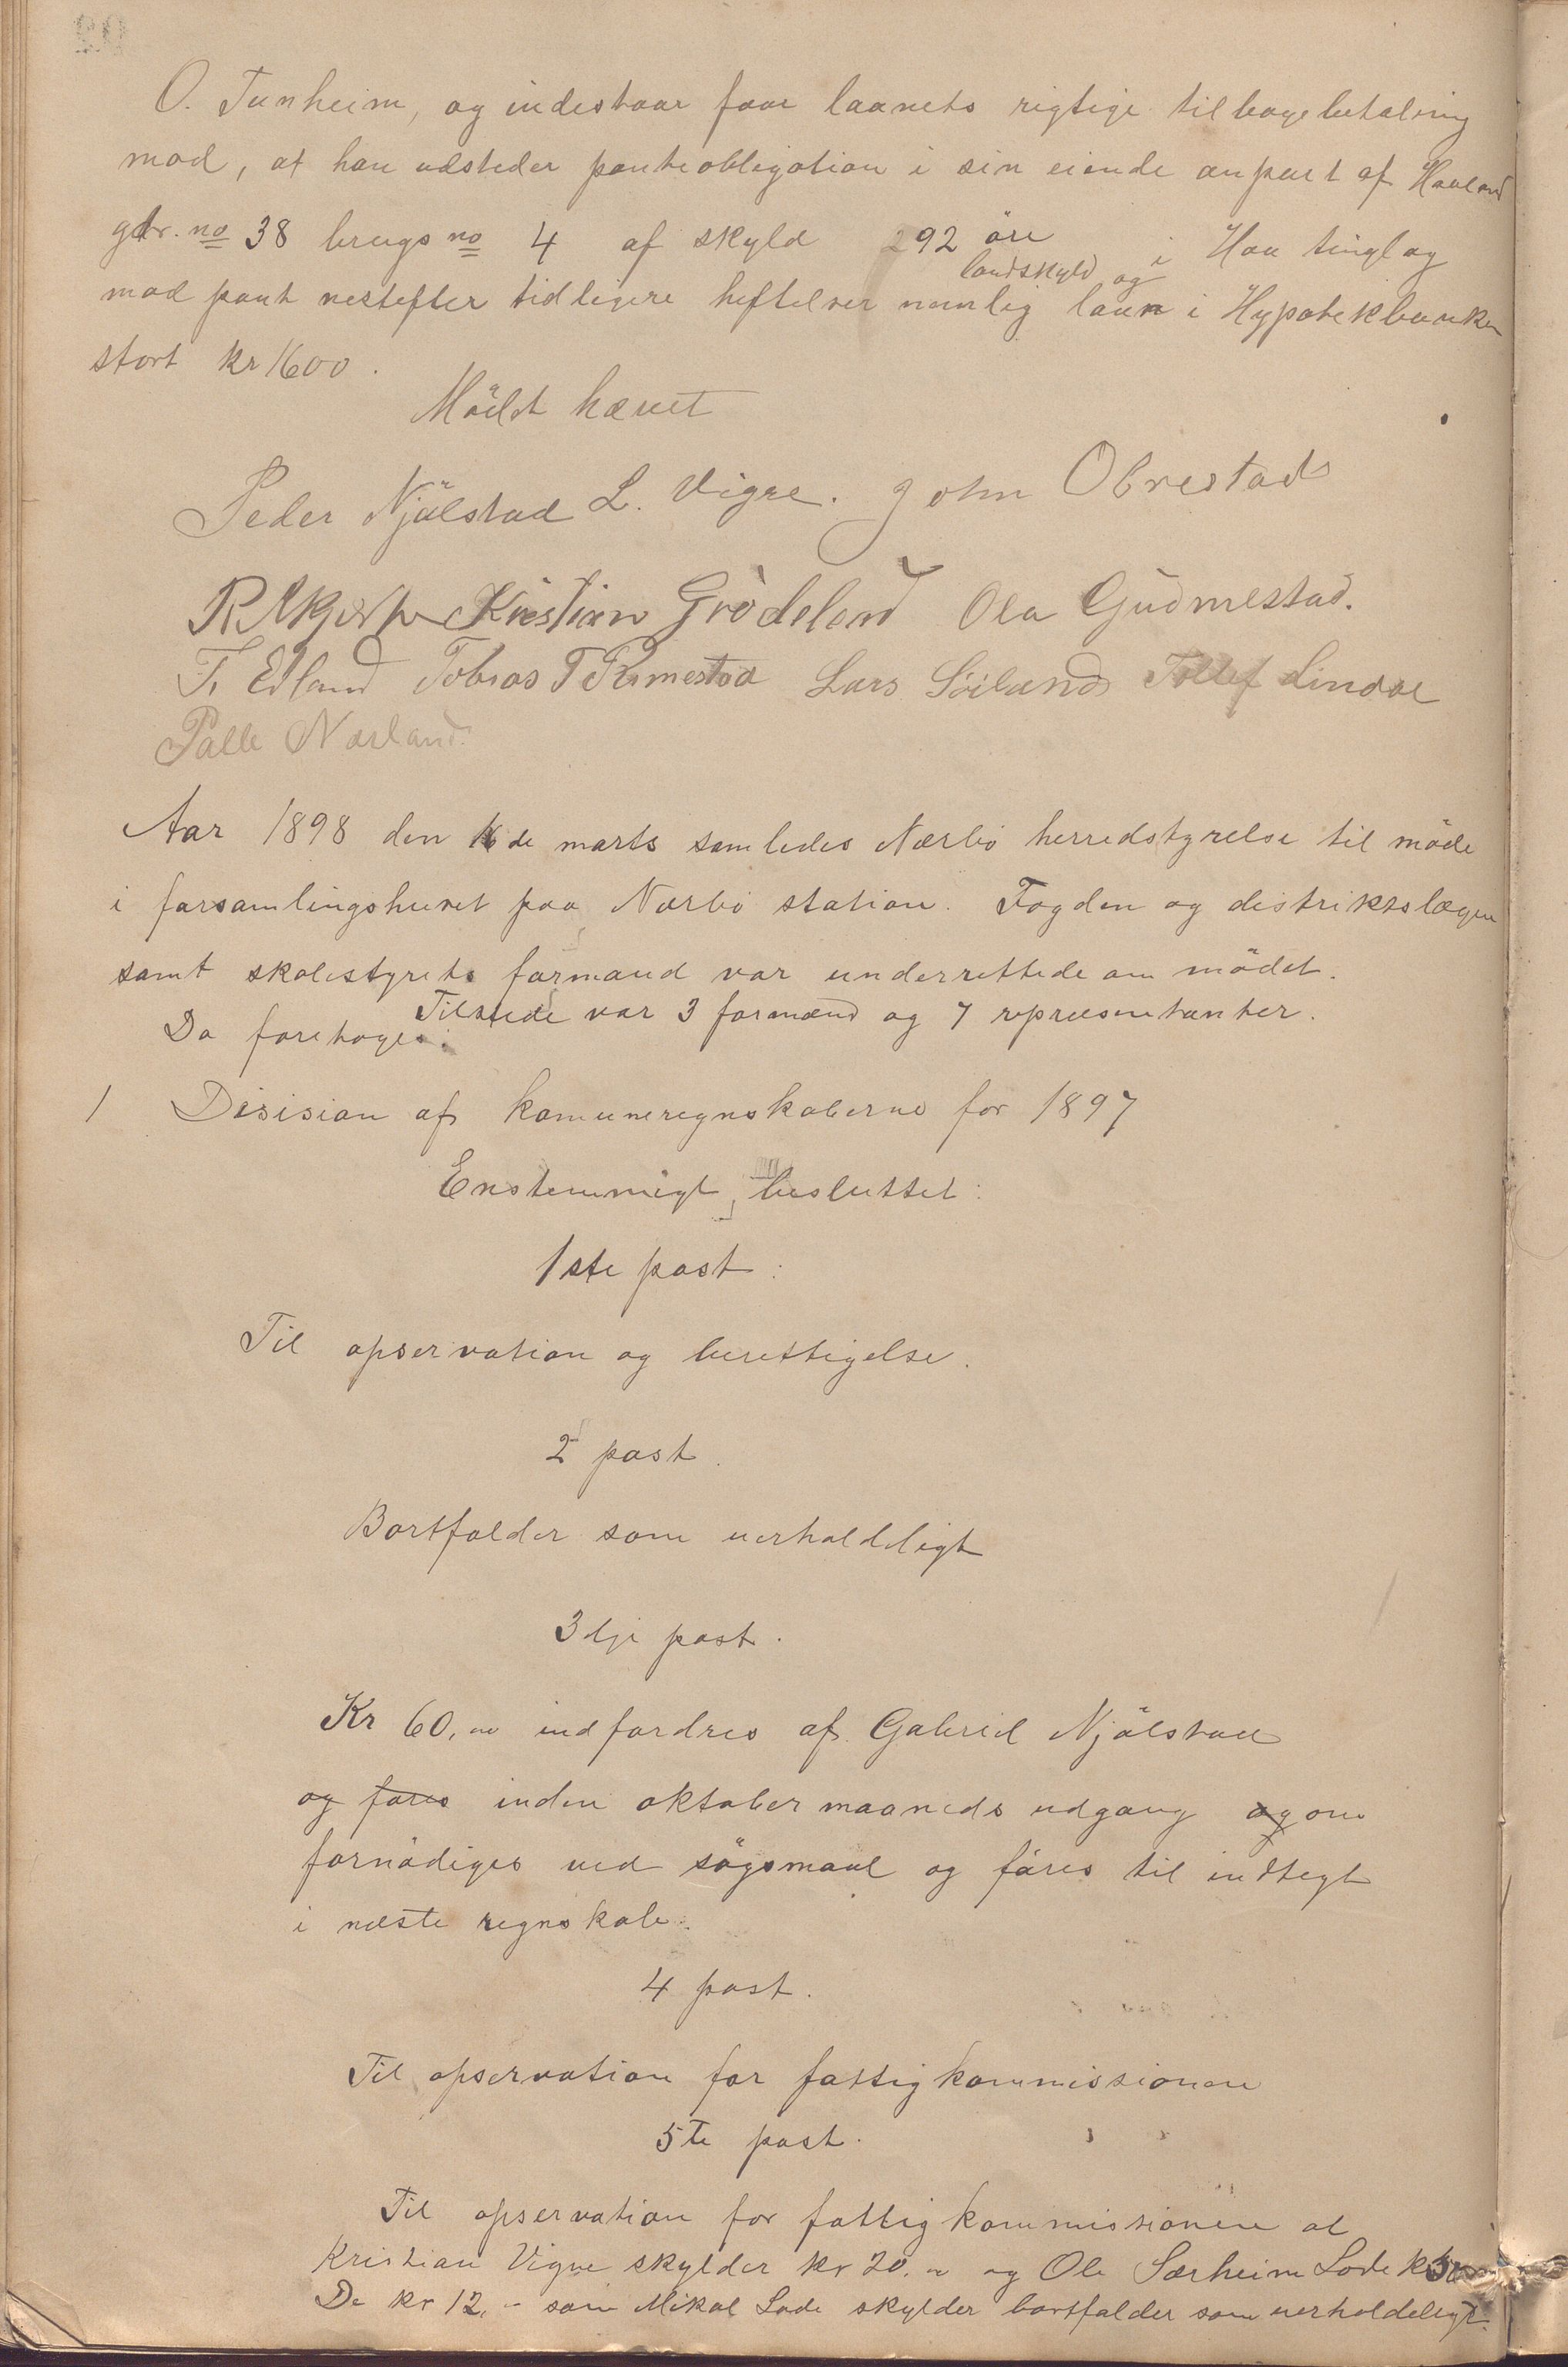 O. Tunheim, og indestaar faar laanets rigtige tilbagebetaling
mod, at han udsteder panteobligation i sin eiende anpart af Haaland
gdr. no 38 brugs no 4 af skyld 292 öre i Haa tinglag
landskyld og
mod pant nestefter tidligere heftelser nemlig laan i Hypotekbanken
stort kr 1600.
Mödet hævet
Peder Njölstad L. Vigre. John Obrestad
Kristian Grödeland Ola Gudmestad.
T. Edland Tobias T Rimestad Lars Söiland Tollef Lindal
Palle Nærland.
Aar 1898 den 16de marts samledes Nærbö herredstyrelse til möde
i forsamlingshuset paa Nærbö station. Fogden og distriktslægen
samt skolestyrets formand var underrettede om mödet.
Tilstede var 3 formænd og 7 repræsentanter.
Da foretoges:
1 Desision af komuneregnskaberne for 1897
Enstemmigt besluttet:
1ste post:
Til opservation og berettigelse.
2 post.
Bortfalder som uerholdeligt
3dje post.
Kr 60,00 indfordres af Gabriel Njölstad
og föres inden oktober maaneds udgang og om
fornödiges ved sögsmaal og föres til indtegt
i næste regnskab.
4 post.
Til opservation for fattigkommissionen
5te post.
Til opservation for fattigkommissionen at
Kristian Vigre skylder kr 20,00 og Ole Særheim Lode kr
De kr 12,- som Mikal Lode skylder bortfalder som uerholdeligt.